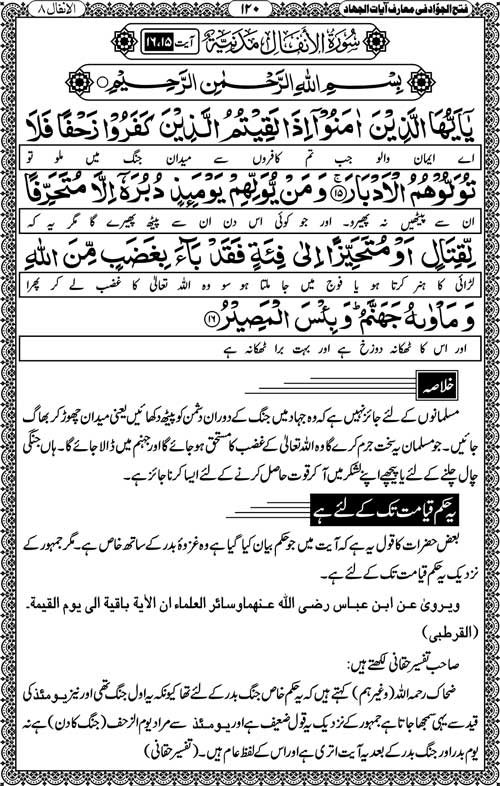 فتح الجوّاد فی معارف آیات الجهاد ۱۲۰ الانفال ۸
سُوْرَةُ الْاَنْفَالِ مَدَنِيَّةٌ آیت ۱۶،۱۵
بِسْمِ اللهِ الرَّحْمٰنِ الرَّحِيْمِ
يٰۤاَيُّهَا الَّذِيْنَ اٰمَنُوْۤا اِذَا لَقِيْتُمُ الَّذِيْنَ كَفَرُوْا زَحْفًا فَلَا
اے ایمان والو جب تم کافروں سے میدان جنگ میں ملو تو
تُوَلُّوْهُمُ الْاَدْبَارَ ۚ‏﴿۱۵﴾ وَمَنْ يُّوَلِّهِمْ يَوْمَىِٕذٍ دُبُرَهٗۤ اِلَّا مُتَحَرِّفًا
ان سے پیٹھیں نہ پھیرو۔ اور جو کوئی اس دن ان سے پیٹھ پھیرے گا مگر یہ کہ
لِّقِتَالٍ اَوْ مُتَحَيِّزًا اِلٰى فِئَةٍ فَقَدْ بَآءَ بِغَضَبٍ مِّنَ اللهِ
لڑائی کا ہنر کرتا ہو یا فوج میں جا ملتا ہو سو وہ اللہ تعالیٰ کا غضب لے کر پھرا
وَ مَاْوٰىهُ جَهَنَّمُ ؕ وَ بِئْسَ الْمَصِيْرُ ﴿۱۶﴾
اور اس کا ٹھکانہ دوزخ ہے اور بہت برا ٹھکانہ ہے
خلاصہ
مسلمانوں کے لئے جائز نہیں ہے کہ وہ جہاد میں جنگ کے دوران دشمن کو پیٹھ دکھائیں یعنی میدان چھوڑ کر بھاگ
جائیں۔ جو مسلمان یہ سخت جرم کرے گا وہ اللہ تعالیٰ کے غضب کا مستحق ہو جائے گا اور جہنم میں ڈالا جائے گا۔ ہاں جنگی
چال چلنے کے لئے یا پیچھے اپنے لشکر میں آ کر قوت حاصل کرنے کے لئے ایسا کرنا جائز ہے۔
یہ حکم قیامت تک کے لئے ہے
بعض حضرات کا قول یہ ہے کہ آیت میں جو حکم بیان کیا گیا ہے وہ غزوۂ بدر کے ساتھ خاص ہے۔ مگر جمہور کے
نزدیک یہ حکم قیامت تک کے لئے ہے۔
ويروىٰ عن ابن عباس رضى الله عنهما وسائر العلماء ان الاية باقية الى يوم القيمة۔
(القرطبى)
صاحب تفسیر حقانی لکھتے ہیں:
ضحاک رحمہ اللہ (وغیرہم) کہتے ہیں کہ یہ حکم خاص جنگ بدر کے لئے تھا کیونکہ یہ اول جنگ تھی اور نیز یومئذ کی
قید سے یہی سمجھا جاتا ہے جمہور کے نزدیک یہ قول ضعیف ہے اور یومئذ سے مراد یوم الزحف (جنگ کا دن) ہے نہ
یوم بدر اور جنگ بدر کے بعد یہ آیت اتری ہے اور اس کے لفظ عام ہیں۔ (تفسیر حقانی)